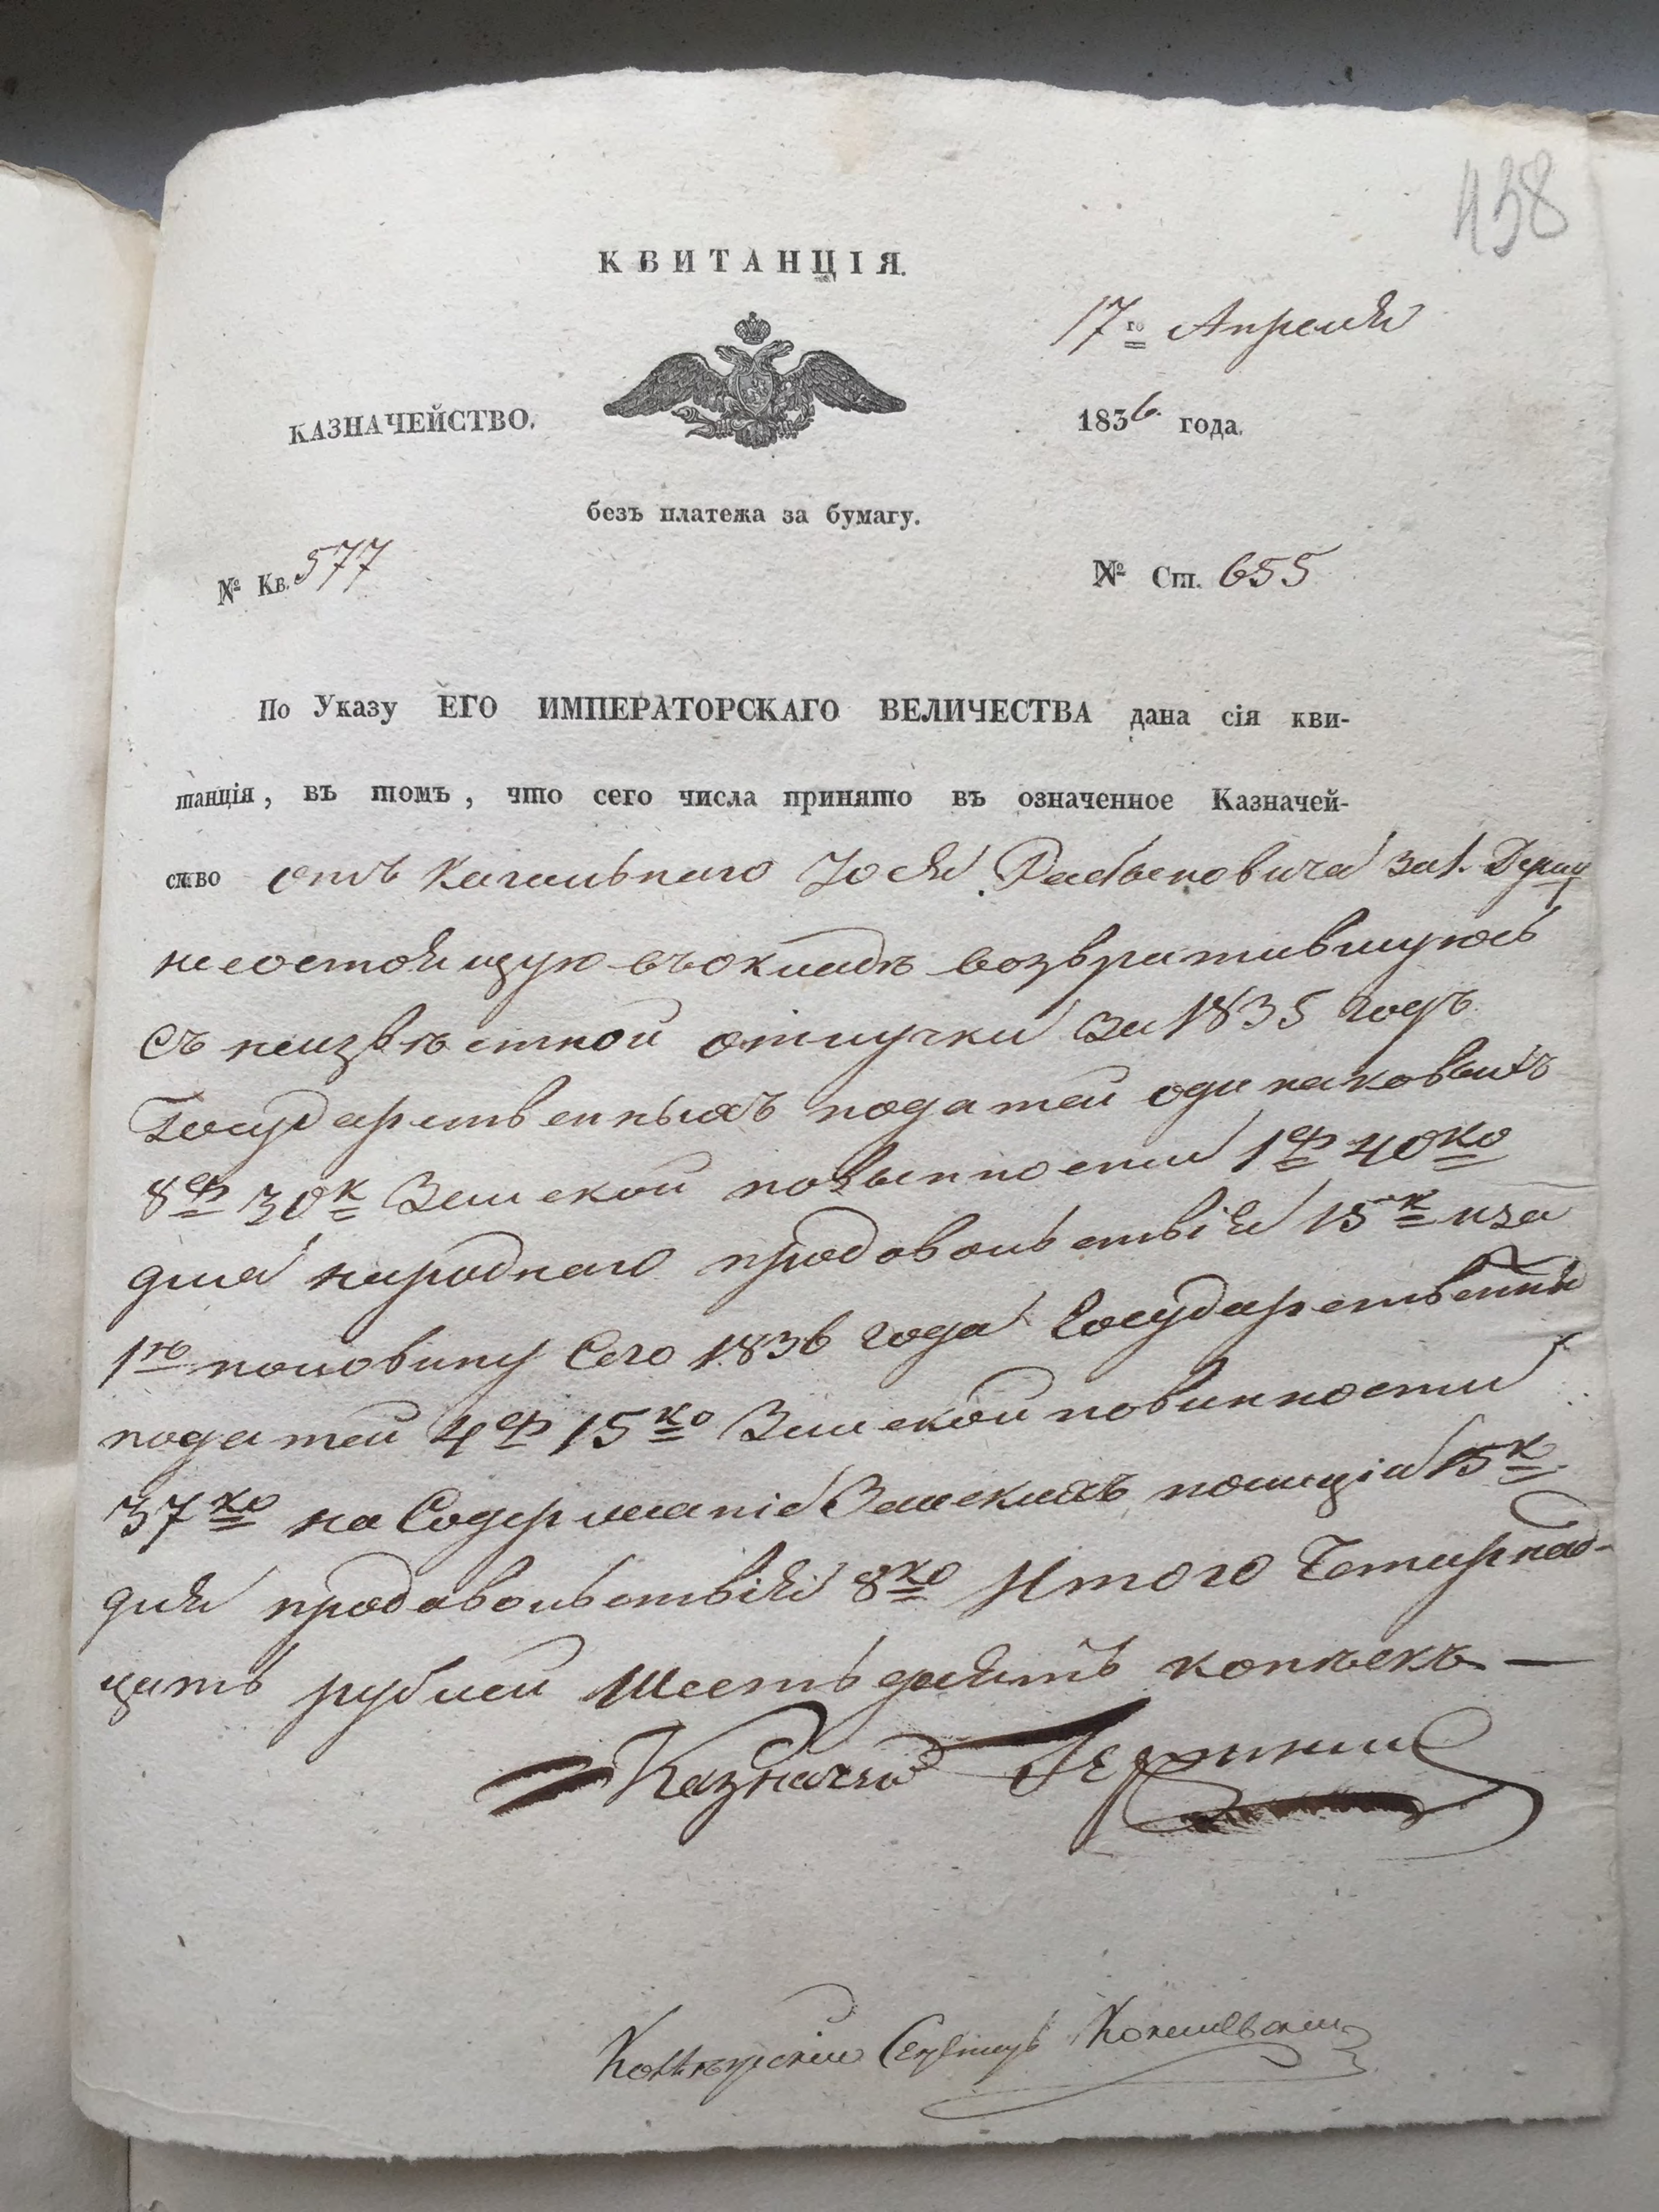 438
КВИТАНЦІЯ.
17го Апреля
КАЗНАЧЕЙСТВО.
1836 года.
безъ платежа за бумагу.
№ Кв. 577
№ Ст. 655
По Указу ЕГО ИМПЕРАТОРСКАГО ВЕЛИЧЕСТВА дана сія кви-
танція, въ томъ, что сего числа принято въ означенное Казначей-
ство отъ Кагальнаго Іося за 1. Душу
несостоящую въ окладѣ возвратившуюсь
съ неизвѣстной отлучки за 1835 годъ
Государственныхъ податей одинаковыхъ
8ер 30к Земской повынности 1ер 40ко
для народнаго продовольствія 15к и за
1ю половину Сего 1836 года Государственны
податей 4ер 15ко Земской повинности
37ко на Содержаніе Земскихъ полиціи 15к
для продовольствія 8ко Итого Четырнад-
цать рублей Шестьдесятъ копѣекъ —
Казначей